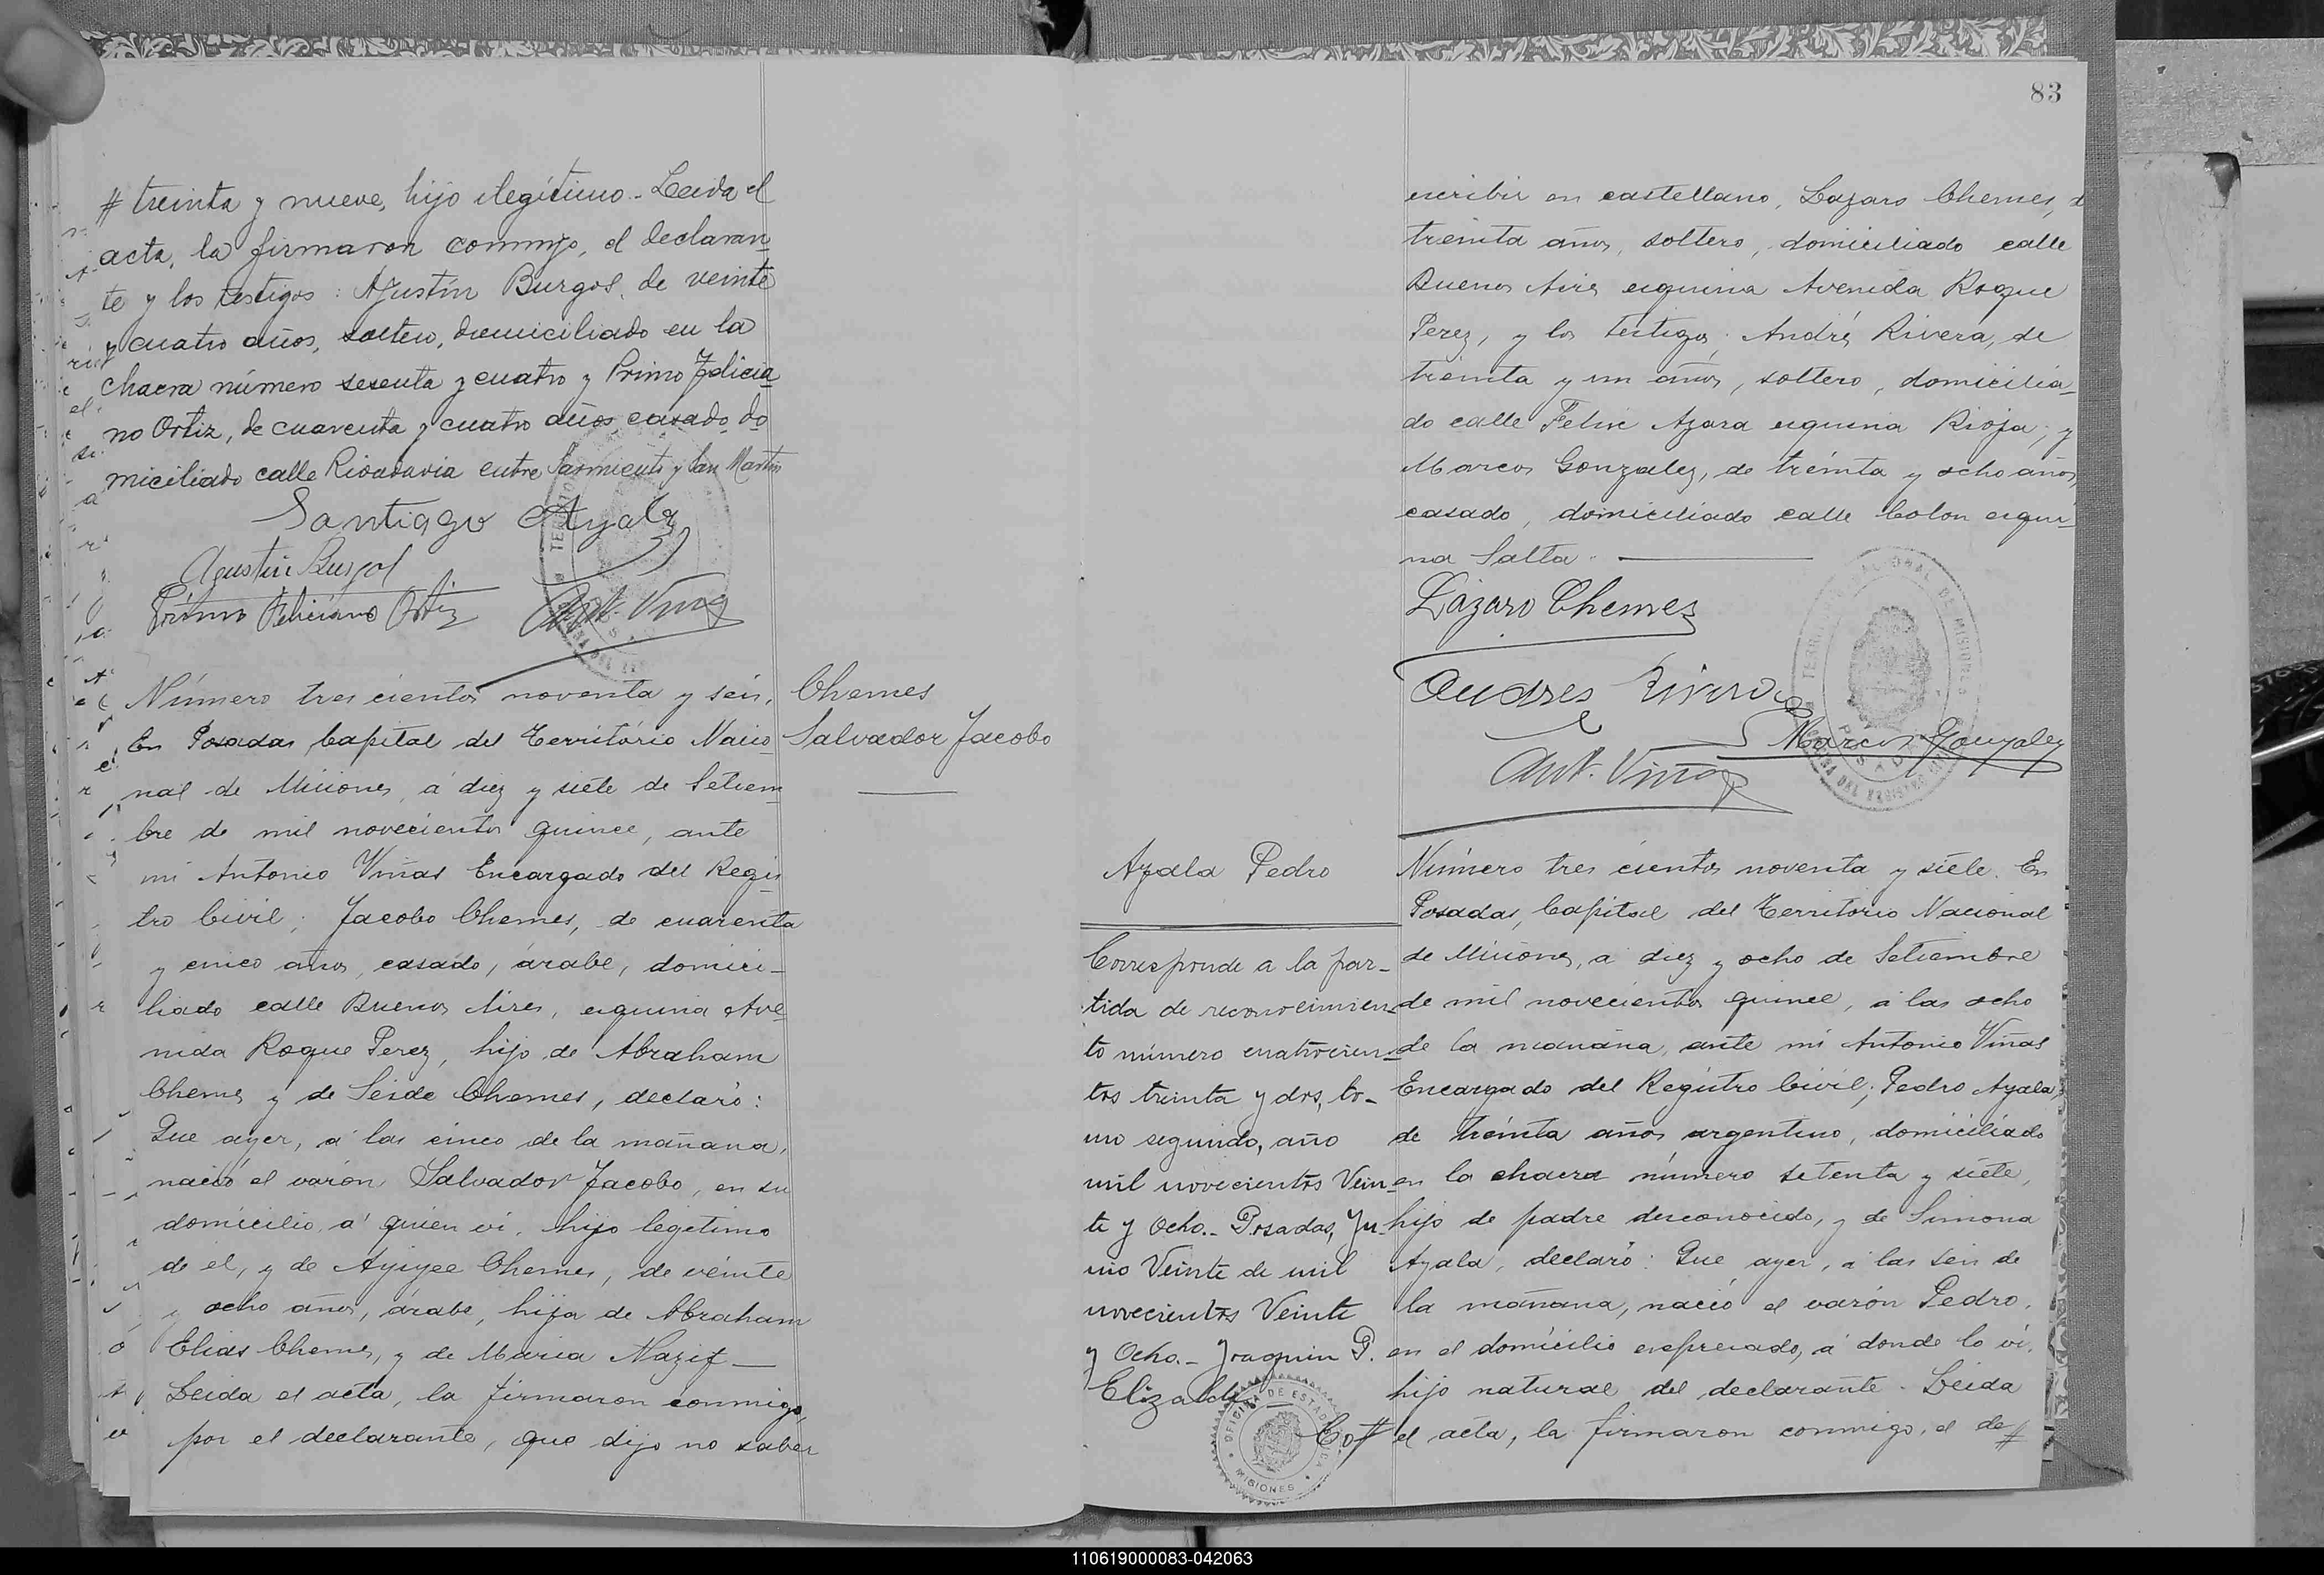 # treinta y nueve, hijo ilegítimo.- Leida el
acta, la firmaron conmigo, el declaran
te y los testigos: Agustín Burgos, de veinte
y cuatro años, soltero, domiciliado en la
chacra número sesenta y cuatro y Primo Felicia
no Ortiz, de cuarenta y cuatro años, casado, do
miciliado calle Rivadavia entre Sarmiento y San Martin
Santiago Ayala
Agustin Burgos
Primo Feliciano Ortiz
Ant. Viñas
Número tres cientos noventa y seis.
Chemes
En Posadas, Capital del Território Nacio
Salvador Jacobo
nal de Misiones, á diez y siete de Setiem
bre de mil novecientos quince, ante
mi Antonio Viñas Encargado del Regis
tro Civil; Jacobo Chemes, de cuarenta
y cinco años, casado, árabe, domici-
liado calle Buenos Aires, esquina Ave
nida Roque Perez, hijo de Abraham
Chemes y de Seide Chemes, declaró:
Que ayer, á las cinco de la mañana,
nació el varón Salvador Jacobo, en su
domicilio, á quien vi, hijo legítimo
de él, y de Chemes, de veinte
y ocho años, árabe, hija de Abraham
Elias Chemes, y de Maria Nazif —
Leida el acta, la firmaron conmigo,
por el declarante, que dijo no saber
83
escribir en castellano, Lazaro Chemes, de
treinta años, soltero, domiciliado calle
Buenos Aires esquina Avenida Roque
Perez, y los testigos: Andrés Rivera, de
treinta y un años, soltero, domicilia-
do calle Felix Azara esquina Rioja; y
Marcos Gonzalez, de treinta y ocho años,
casado, domiciliado calle Colon esqui-
na Salta.
Lázaro Chemes
Andres Rivera
Marcos Gonzalez
Ant. Viñas
TERRITORIO NACIONAL DE MISIONES
POSADAS
Ayala Pedro
Corresponde a la par-
tida de reconocimien-
to número cuatrocien-
tos treinta y dos, to-
mo segundo, año
mil novecientos Vein-
te y Ocho.- Posadas, Ju-
nio Veinte de mil
novecientos Veinte
y Ocho.- Joaquin P.
Elizalde
OFICINA DE ESTADISTICA
MISIONES
Número tres cientos noventa y siete. En
Posadas, Capital del Territorio Nacional
de Misiones, á diez y ocho de Setiembre
de mil novecientos quince, á las ocho
de la mañana, ante mi Antonio Viñas
Encargado del Registro Civil; Pedro Ayala,
de treinta años argentino, domiciliado
en la chacra número setenta y siete,
hijo de padre desconocido, y de Simona
Ayala, declaró: Que ayer, á las seis de
la mañana, nació el varón Pedro,
en el domicilio expresado, á donde lo vi,
hijo natural del declarante. Leida
el acta, la firmaron conmigo, el de#
110619000083-042063